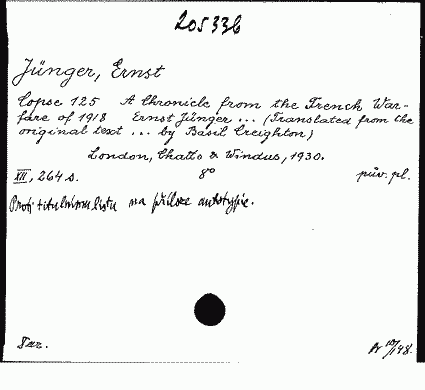 205336
Jünger, Ernst
Copse 125 A Chronicle from the Trench War-
fare of 1918 Ernst Jünger ... (Translated from the
original text ... by Basil Creighton)
London, Chatto & Windus, 1930.
XII, 264 s. 8° pův. pl.
Proti titulnímu listu na příloze autotypie.